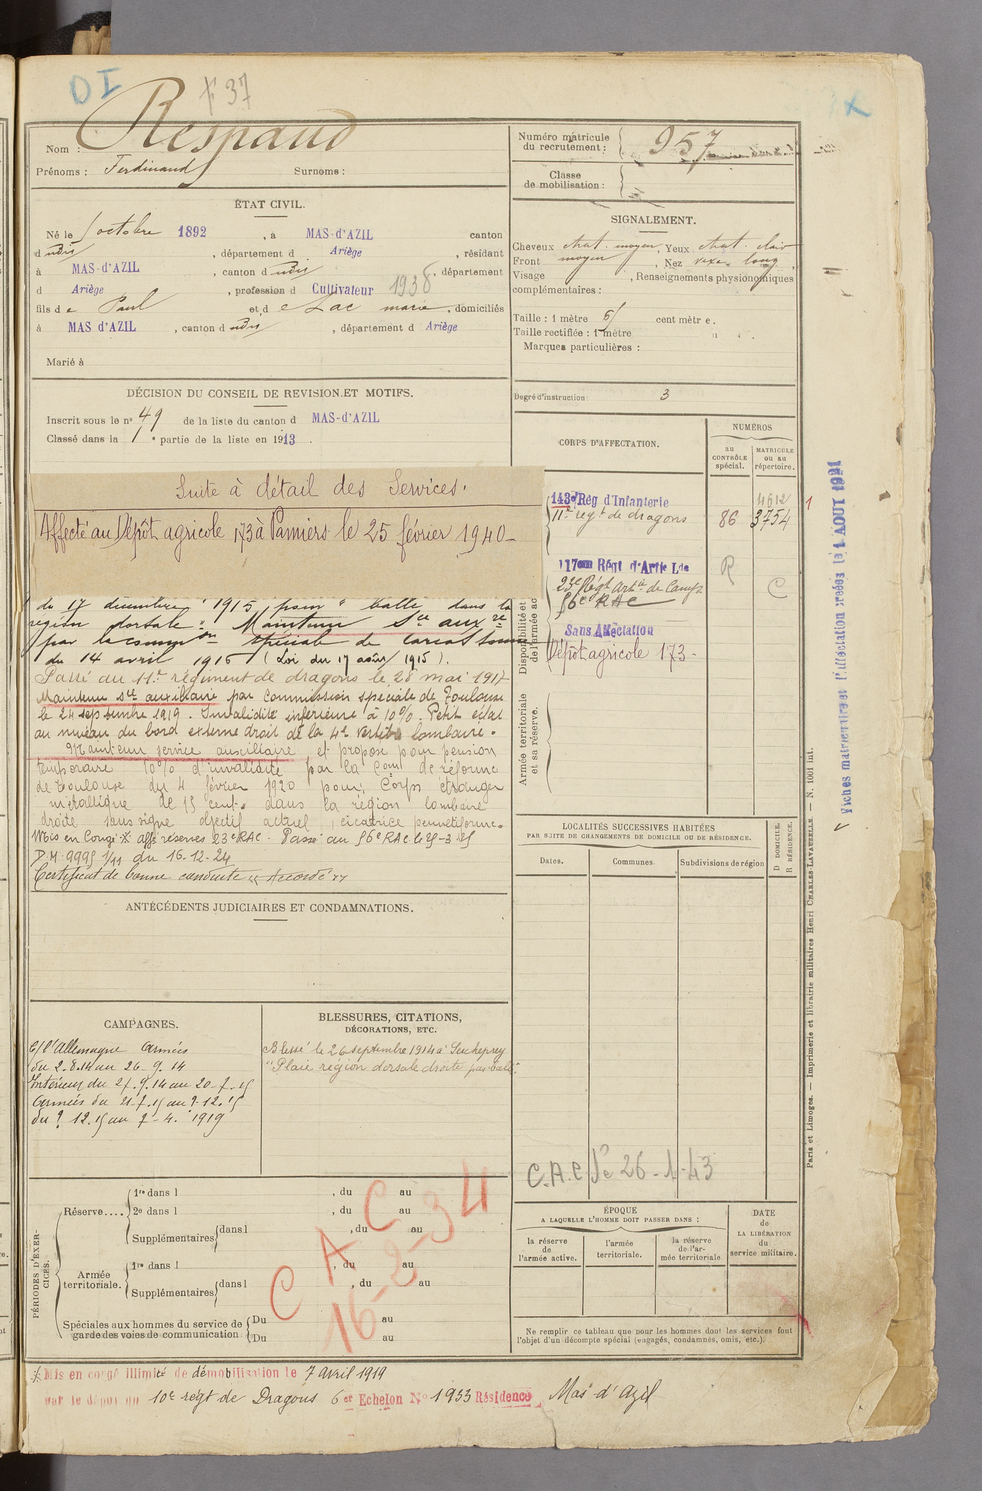 DI
F 37
Nom : Respaud
Prénoms : Ferdinand Surnoms :
Numéro matricule du recrutement : 957
Classe de mobilisation :
ÉTAT CIVIL.
Né le 1 octobre 1892, à MAS-d'AZIL canton
d udis, département d Ariège, résidant
à MAS-d'AZIL, canton d udis, département
d Ariège, profession d Cultivateur 1938
fils de Paul et de Lac marie, domiciliés
à MAS d'AZIL, canton d udis, département d Ariège
Marié à
SIGNALEMENT.
Cheveux chat. moyen, Yeux chat. clair
Front moyen, Nez long,
Visage , Renseignements physionomiques
complémentaires :
Taille : 1 mètre 61 cent mètr e.
Taille rectifiée : 1 mètre
Marques particulières :
Degré d'instruction : 3
DÉCISION DU CONSEIL DE REVISION ET MOTIFS.
Inscrit sous le n° 49 de la liste du canton d MAS-d'AZIL
Classé dans la 1e partie de la liste en 1913.
Suite à détail des Services.
Affecté au Dépôt agricole 173 à Pamiers le 25 février 1940-
du 17 décembre 1915 pour " balle dans la
région dorsale". Maintenu sce auxre
par la common spéciale de Carcassonne
du 14 avril 1916 (Loi du 17 août 1915).
Passé au 11e régiment de dragons le 28 mai 1917
Maintenu sce auxiliaire par commission spéciale de Toulouse
le 24 septembre 1919. Invalidité inférieure à 10%. Petit éclat
au niveau du bord externe droit de la 4e vertèbre lombaire.
Maintenu service auxiliaire et proposé pour pension
temporaire 10% d'invalidité par la Com de réforme
de Toulouse du 4 février 1920 pour, Corps étranger
métallique de 15 cent. dans la région lombaire
droite sans signe objectif actuel, cicatrice punctiforme.
Mis en Congé * affé réserves 23e RAC. Passé au 56e RAC le 25-3-25
D.M 9995 1/11 du 16-12-24
Certificat de bonne conduite "Accordé"
CORPS D'AFFECTATION.
NUMÉROS
au CONTRÔLE spécial.
MATRICULE ou au répertoire.
Disponibilité et
de l'armée ac
143e Rég d'Infanterie 4612
11e régt de dragons 86 3754
117eme Régt d'Artie Lde R
23e Régt Artie de Camp C
56e RAC
Sans Affectation
Dépôt agricole 173-
Armée territoriale
et sa réserve.
LOCALITÉS SUCCESSIVES HABITÉES
PAR SUITE DE CHANGEMENTS DE DOMICILE OU DE RÉSIDENCE.
Dates. Communes. Subdivisions de région
D DOMICILE.
R RÉSIDENCE.
ANTÉCÉDENTS JUDICIAIRES ET CONDAMNATIONS.
CAMPAGNES.
C/ l'Allemagne Armées
du 2.8.14 au 26-9.14
Intérieur du 27.9.14 au 20-7-15
Armées du 21-7.15 au 9-12.15
du 9.12.15 au 7-4.1919
BLESSURES, CITATIONS,
DÉCORATIONS, ETC.
Blessé le 26 septembre 1914 à Seicheprey
"Plaie région dorsale droite par balle".
C.A.C le 26-1-43
PÉRIODES D'EXERCICES.
Réserve.... 1re dans l , du au
2e dans l , du au
Supplémentaires dans l , du au
Armée territoriale. 1re dans l , du au
Supplémentaires dans l , du au
Spéciales aux hommes du service de garde des voies de communication Du au
Du au
C A C
16-2-34
ÉPOQUE
A LAQUELLE L'HOMME DOIT PASSER DANS :
la réserve de l'armée active.
l'armée territoriale.
la réserve de l'armée territoriale
DATE de LA LIBÉRATION du service militaire.
Ne remplir ce tableau que pour les hommes dont les services font
l'objet d'un décompte spécial (engagés, condamnés, omis, etc.).
* Mis en congé illimité de démobilisation le 7 avril 1919
par le dépôt du 10e régt de Dragons 6er Echelon N° 1933 Résidence Mas d'Azil
Paris et Limoges. — Imprimerie et librairie militaires Henri CHARLES-LAVAUZELLE — N. 1001 int.
Fiches matriculaire et d'affectation créées le 1 AOUT 1921